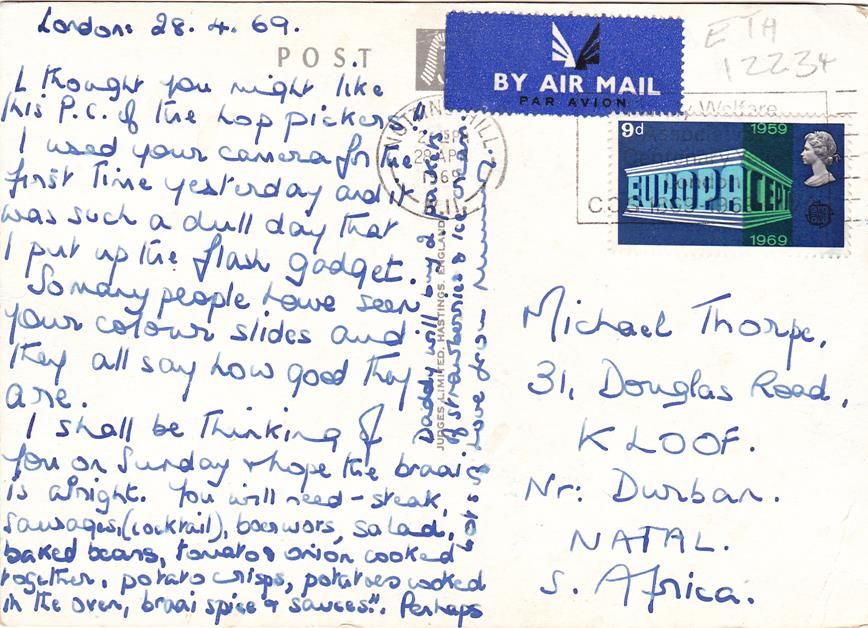 London: 28.4.69.
POST
I thought you might like
this P.C. of the hop pickers.
I used your camera for the
first time yesterday and it
was such a dull day that
I put up the flash gadget.
So many people have seen
your colour slides and
they all say how good they
are.
I shall be thinking of
you on Sunday & hope the braai
is alright. You will need - steak,
sausages, (cocktail), boerwors, salad,
baked beans, tomato & onion cooked
together, potato crisps, potatoes cooked
in the oven, braai spice & sauces!!. Perhaps
Daddy will buy 2 packets
of strawberries & ice cream
Love from Mummy
JUDGES LIMITED, HASTINGS, ENGLAND
BY AIR MAIL
PAR AVION
ETH
12234
NOTTING HILL
28 AP
1969
W.11
Welfare
1969
9d
1959
EUROPA CEPT
1969
Michael Thorpe,
31, Douglas Road,
KLOOF.
Nr: Durban.
NATAL.
S. Africa.